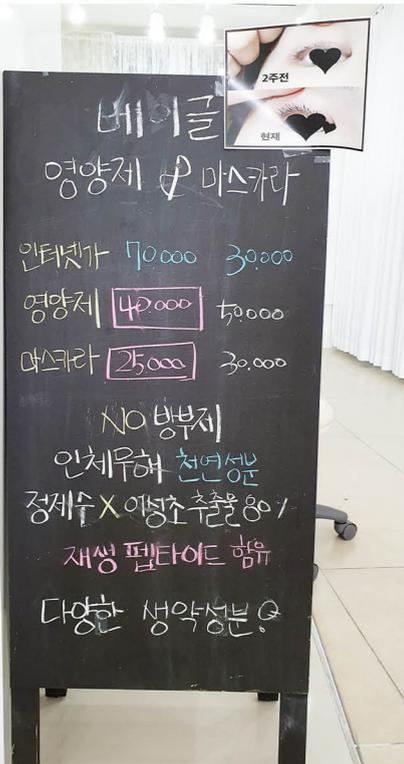 2주전
현재
베이글
영양제 & 마스카라
인터넷가 70.000 30.000
영양제 40.000 50.000
마스카라 25.000 30.000
NO 방부제
인체무해 천연성분
정제수 X 어성초추출물 80%
재생 펩타이드 함유
다양한 생약성분